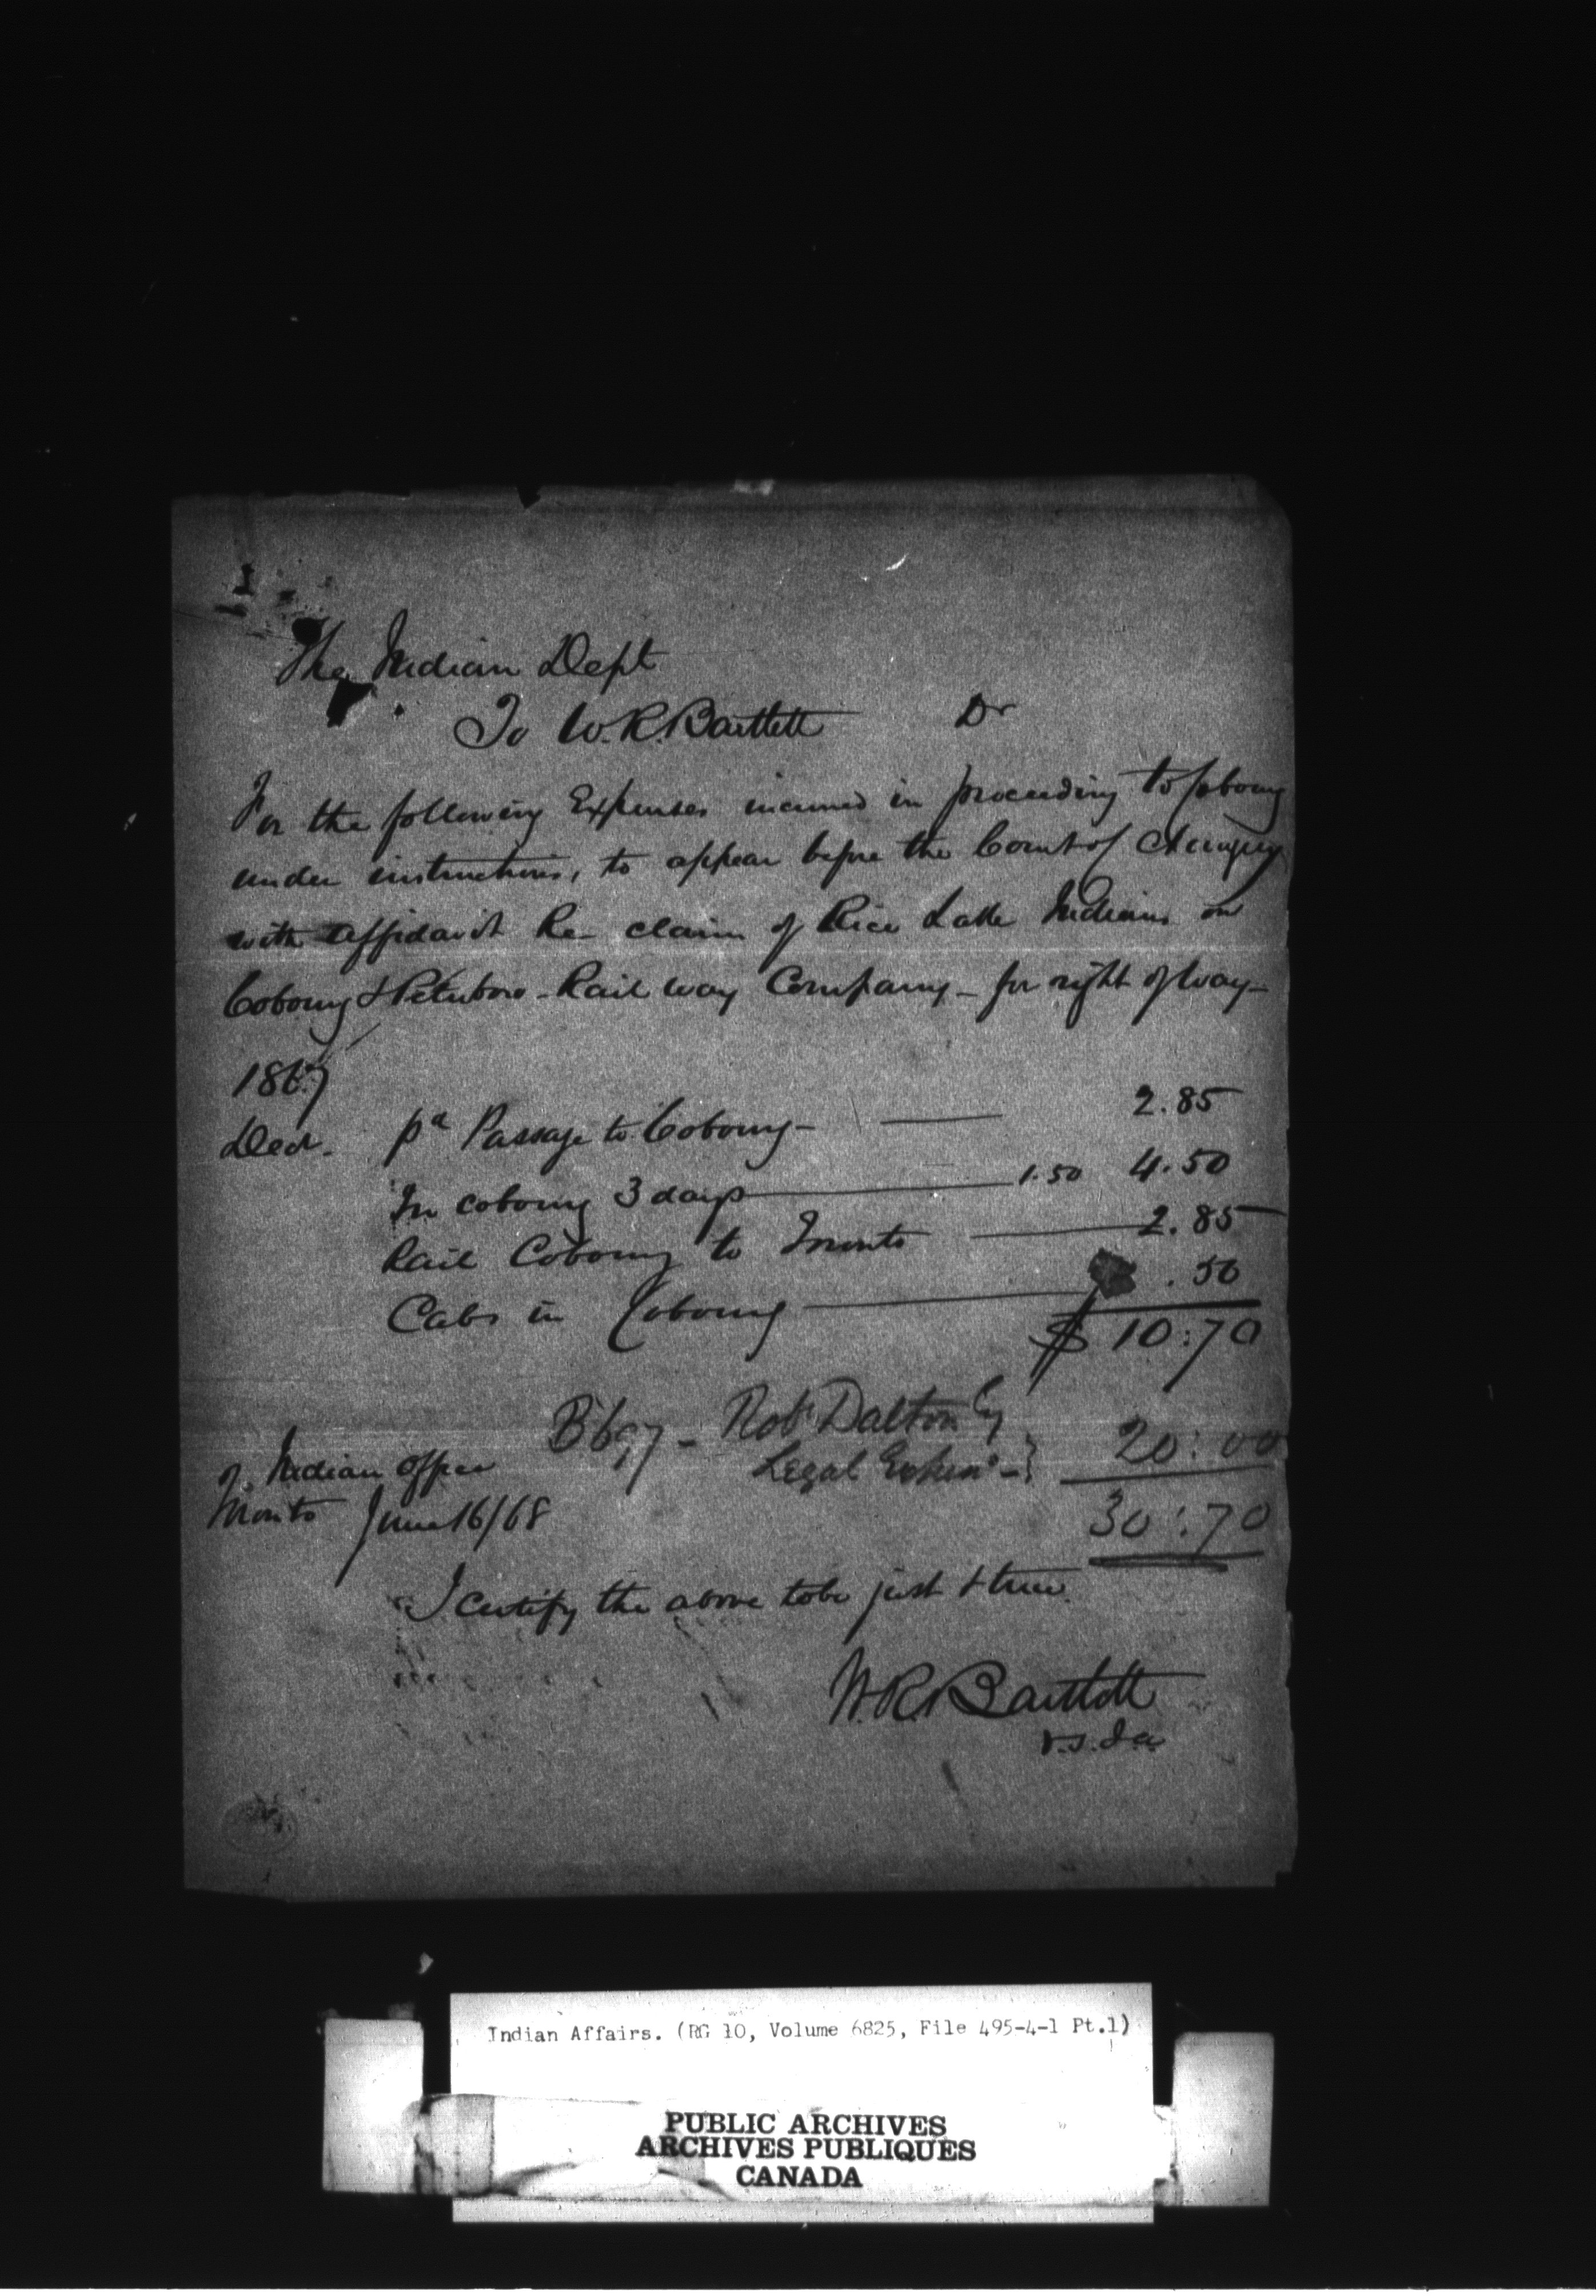 The Indian Dept
To W. R. Bartlett Dr
For the following Expenses incurred in proceeding to Cobourg
under instructions, to appear before the Court of Chancery
with affidavit Re claim of Rice Lake Indians on
Cobourg & Peterboro - Railway Company - for right of Way -
1867
Decr. pd Passage to Cobourg - 2.85
In cobourg 3 days 1.50 4.50
Rail Cobourg to Toronto 2.85
Cabs in Cobourg .50
$ 10:70
B697 - Robt Dalton Esq
Legal Expens - } 20:00
Indian Office
Toronto June 16/68
30:70
I certify the above to be just & true.
W. R. Bartlett
V.S.I.A.
Indian Affairs. (RG 10, Volume 6825, File 495-4-1 Pt.1)
PUBLIC ARCHIVES
ARCHIVES PUBLIQUES
CANADA